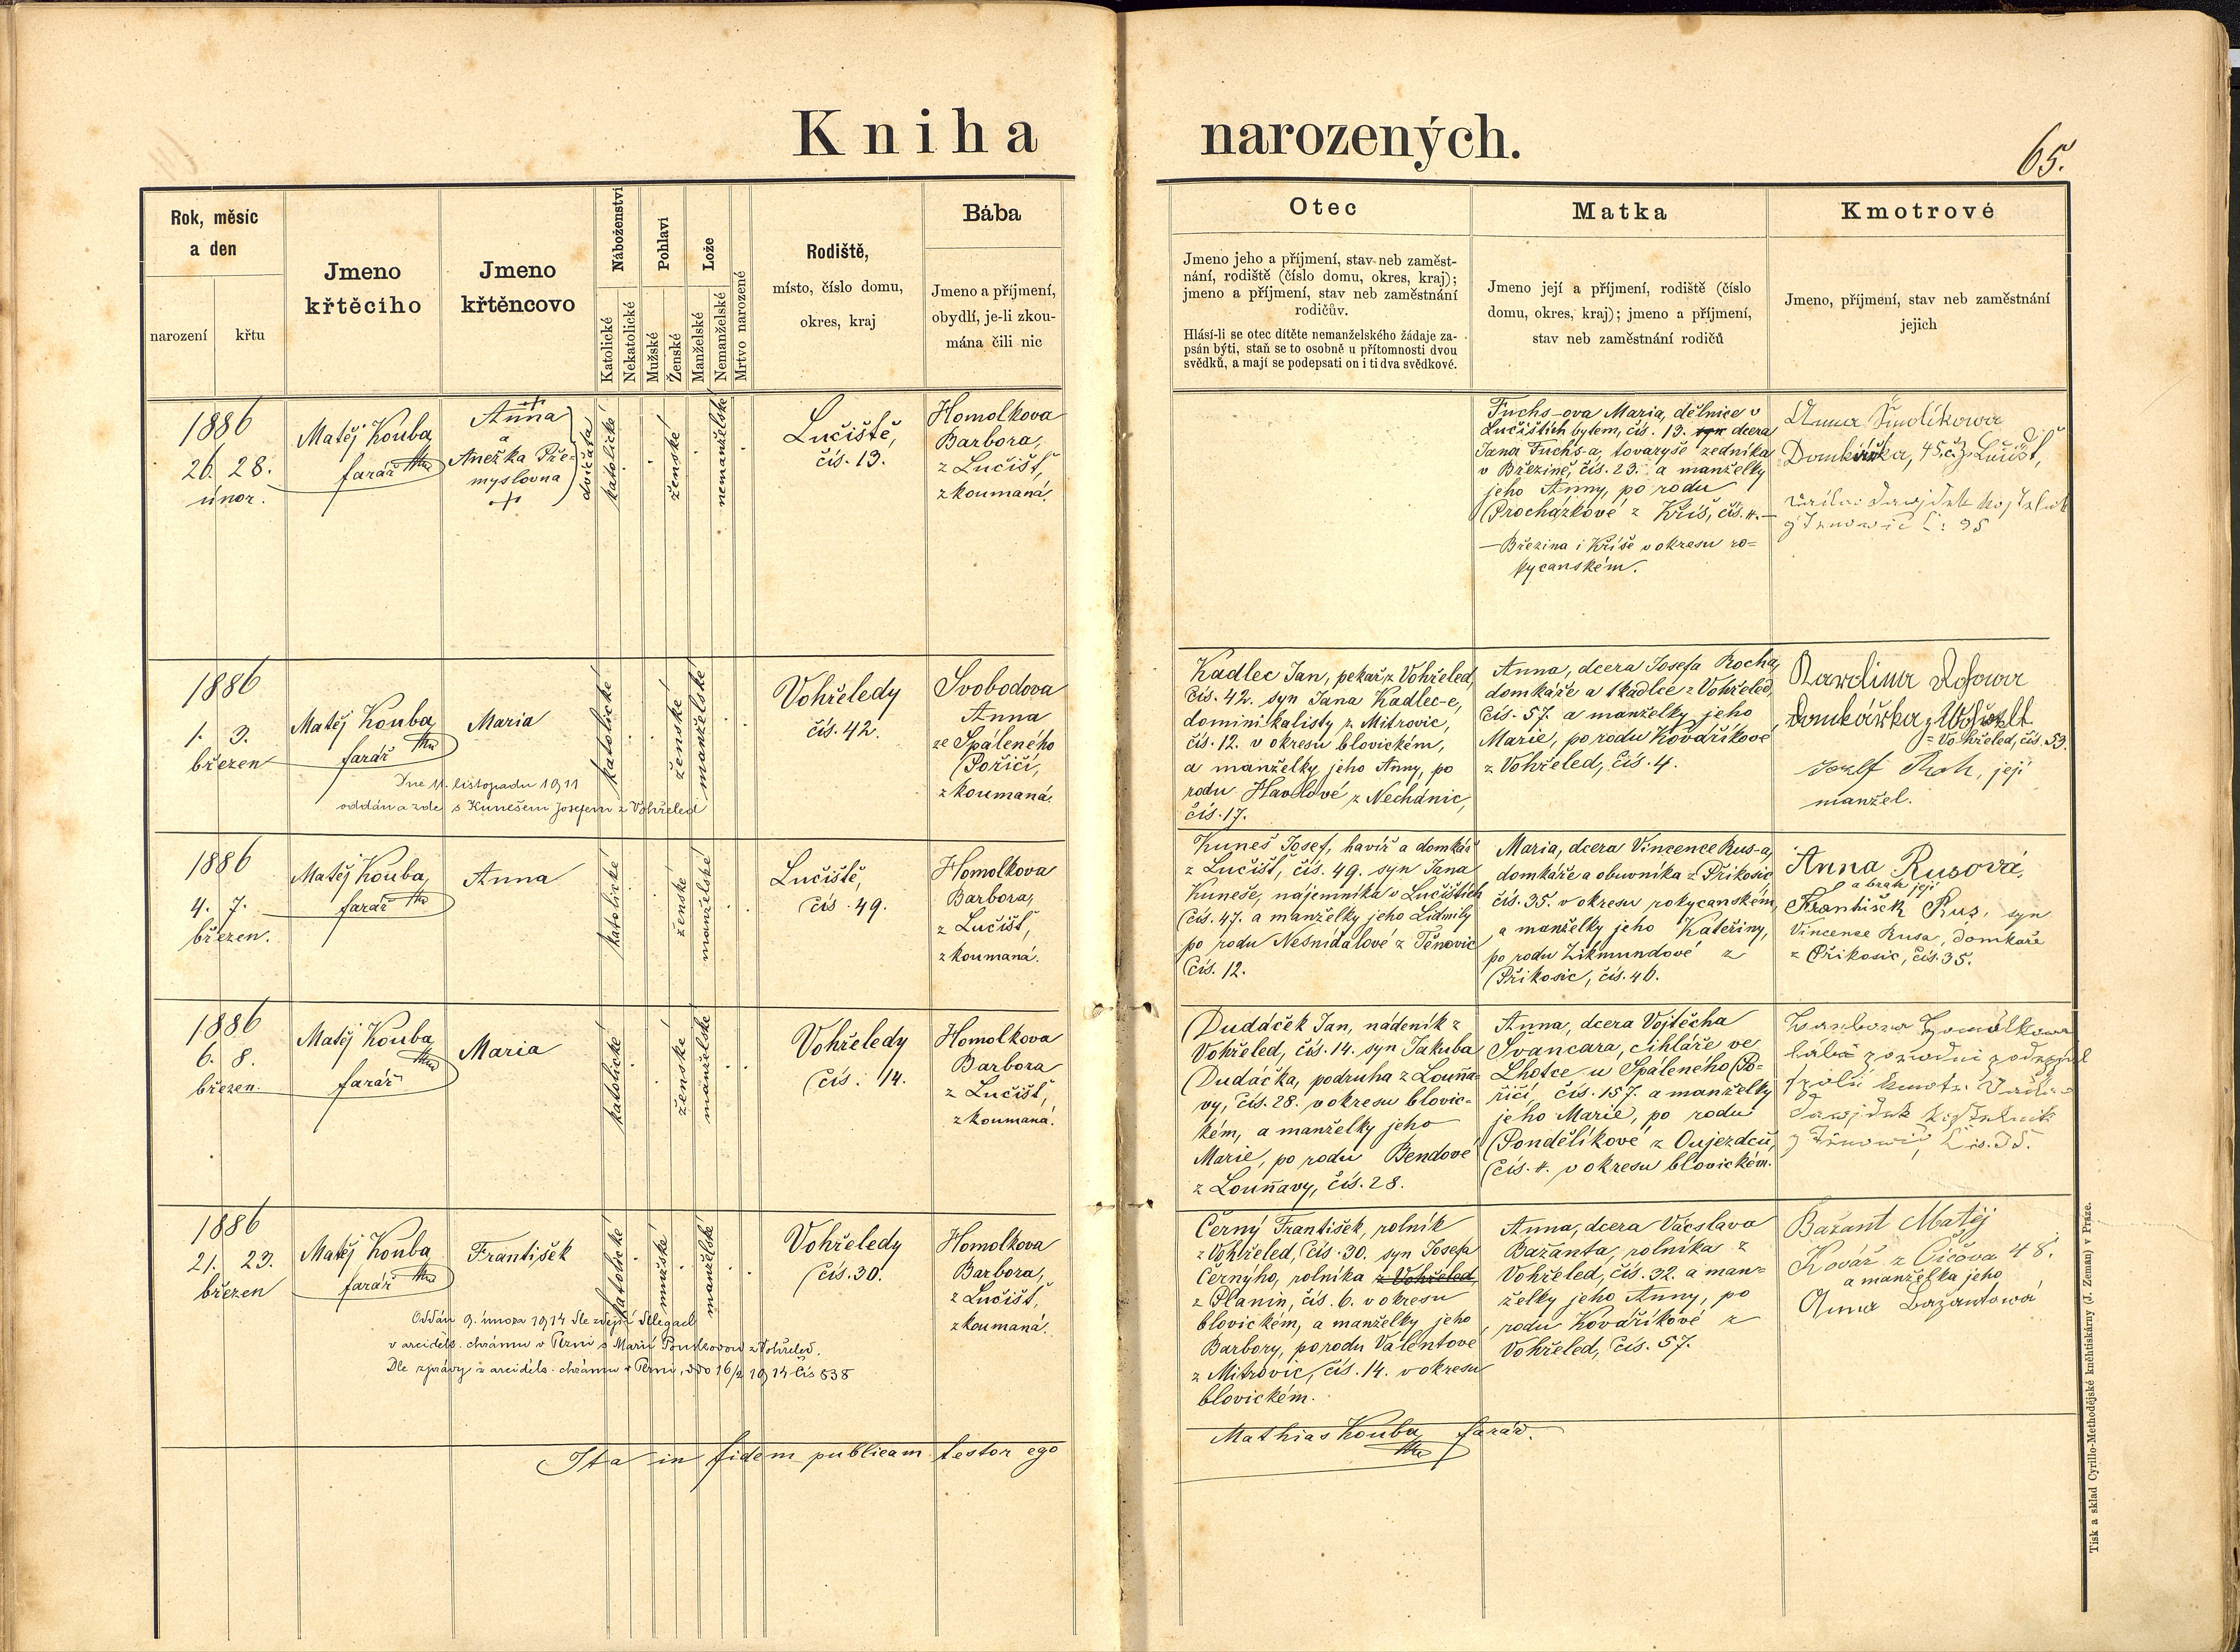 Kniha narozených.
65.
Rok, měsíc
a den
narození
křtu
Jmeno
křtěcího
Jmeno
křtěncovo
Náboženství
Katolické
Nekatolické
Pohlaví
Mužské
Ženské
Lože
Manželské
Nemanželské
Mrtvo narozené
Rodiště,
místo, číslo domu,
okres, kraj
Bába
Jmeno a příjmení,
obydlí, je-li zkou-
mána čili nic
Otec
Jmeno jeho a příjmení, stav neb zaměst-
nání, rodiště (číslo domu, okres, kraj);
jmeno a příjmení, stav neb zaměstnání
rodičův.
Hlásí-li se otec dítěte nemanželského žádaje za-
psán býti, staň se to osobně u přítomnosti dvou
svědků, a mají se podepsati on i ti dva svědkové.
Matka
Jmeno její a příjmení, rodiště (číslo
domu, okres, kraj); jmeno a příjmení,
stav neb zaměstnání rodičů
Kmotrové
Jmeno, příjmení, stav neb zaměstnání
jejich
1886
26. 28.
únor.
Matěj Kouba,
farář
Anna
a
Anežka Pře-
myslovna
dvojčata
katolické
ženské
nemanželské
Lučiště,
čís. 13.
Homolkova
Barbora,
z Lučišť,
zkoumaná.
Fuchs-ova Maria, dělnice v
Lučištích bytem, čís. 13. dcera
Jana Fuchs-a, tovaryše zedníka
v Březině, čís. 23. a manželky
jeho Anny, po rodu
Procházkové z Kříš, čís. 4.
— Březina i Kříše v okresu ro-
kycanském.
Anna Smolíkowa
Domkářka, 45 č. z Lučišť,
1886
1. 3.
březen
Matěj Kouba,
farář
Maria
katolické
ženské
manželské
Vohřeledy
čís. 42.
Svobodova
Anna
ze Spáleného
Poříčí,
zkoumaná.
Dne 11. listopadu 1911
oddána zde s Kunešem Josefem z Vohřeled
Kadlec Jan, pekař z Vohřeled,
čís. 42. syn Jana Kadlec-e,
dominikalisty z Mitrovic,
čís. 12. v okresu blovickém,
a manželky jeho Anny, po
rodu Havlové z Nechánic,
čís. 17.
Anna, dcera Josefa Rocha,
domkáře a tkadlce z Vohřeled,
čís. 57. a manželky jeho
Marie, po rodu Kovaříkové
z Vohřeled, čís. 4.
Karolina
Domkářka z
= Vohřeled, čís. 53.
Josef Roh, její
manžel.
1886
4. 7.
březen.
Matěj Kouba,
farář
Anna
katolické
ženské
manželské
Lučiště,
čís. 49.
Homolkova
Barbora,
z Lučišť,
zkoumaná.
Kuneš Josef, havíř a domkář
z Lučišť, čís. 49. syn Jana
Kuneše, nájemníka v Lučištích
čís. 47. a manželky jeho Lidmily
po rodu Nesnídalové z Těnovic
čís. 12.
Maria, dcera Vincence Rus-a,
domkáře a obuvníka z Příkosic
čís. 35. v okresu rokycanském,
a manželky jeho Kateřiny,
po rodu Zikmundové z
Příkosic, čís. 46.
Anna Rusová,
a bratr její
František Rus, syn
Vincence Rusa, domkaře
z Příkosic, čís. 35.
1886
6. 8.
březen.
Matěj Kouba,
farář
Maria
katolické
ženské
manželské
Vohřeledy
čís. 14.
Homolkova
Barbora
z Lučišť,
zkoumaná.
Dudáček Jan, nádeník z
Vohřeled, čís. 14. syn Jakuba
Dudáčka, podruha z Louňa-
vy, čís. 28. v okresu blovic-
kém, a manželky jeho
Marie, po rodu Bendové
z Louňavy, čís. 28.
Anna, dcera Vojtěcha
Švancara, cihláře ve
Lhotce u Spáleného Po-
říčí, čís. 157. a manželky
jeho Marie, po rodu
Pondělíkové z Oujezdců,
čís. 4. v okresu blovickém.
1886
21. 23.
březen
Matěj Kouba,
farář
František
katolické
mužské
manželské
Vohřeledy
čís. 30.
Homolkova
Barbora,
z Lučišť,
zkoumaná.
Oddán 9. února 1914 dle zdejší delegace
v arciděk. chrámu v Plzni s Marií z Vohřeled.
Dle zprávy z arciděk. chrámu v Plzni, ddo 16/2 1914 čís 838
Černý František, rolník
z Vohřeled, čís. 30. syn Josefa
Černýho, rolníka z Vohřeled,
z Planin, čís. 6. v okresu
blovickém, a manželky jeho
Barbory, po rodu Valentové
z Mitrovic, čís. 14. v okresu
blovickém.
Anna, dcera Václava
Bažanta, rolníka z
Vohřeled, čís. 32. a man-
želky jeho Anny, po
rodu Kovaříkové z
Vohřeled, čís. 57.
Bažant Matěj
Kovář z Čičova 48.
a manželka jeho
Anna Bažantowá
Ita in fidem publicam testor ego
Mathias Kouba, farář.
Tisk a sklad Cyrillo-Methodějské knihtiskárny (J. Zeman) v Praze.